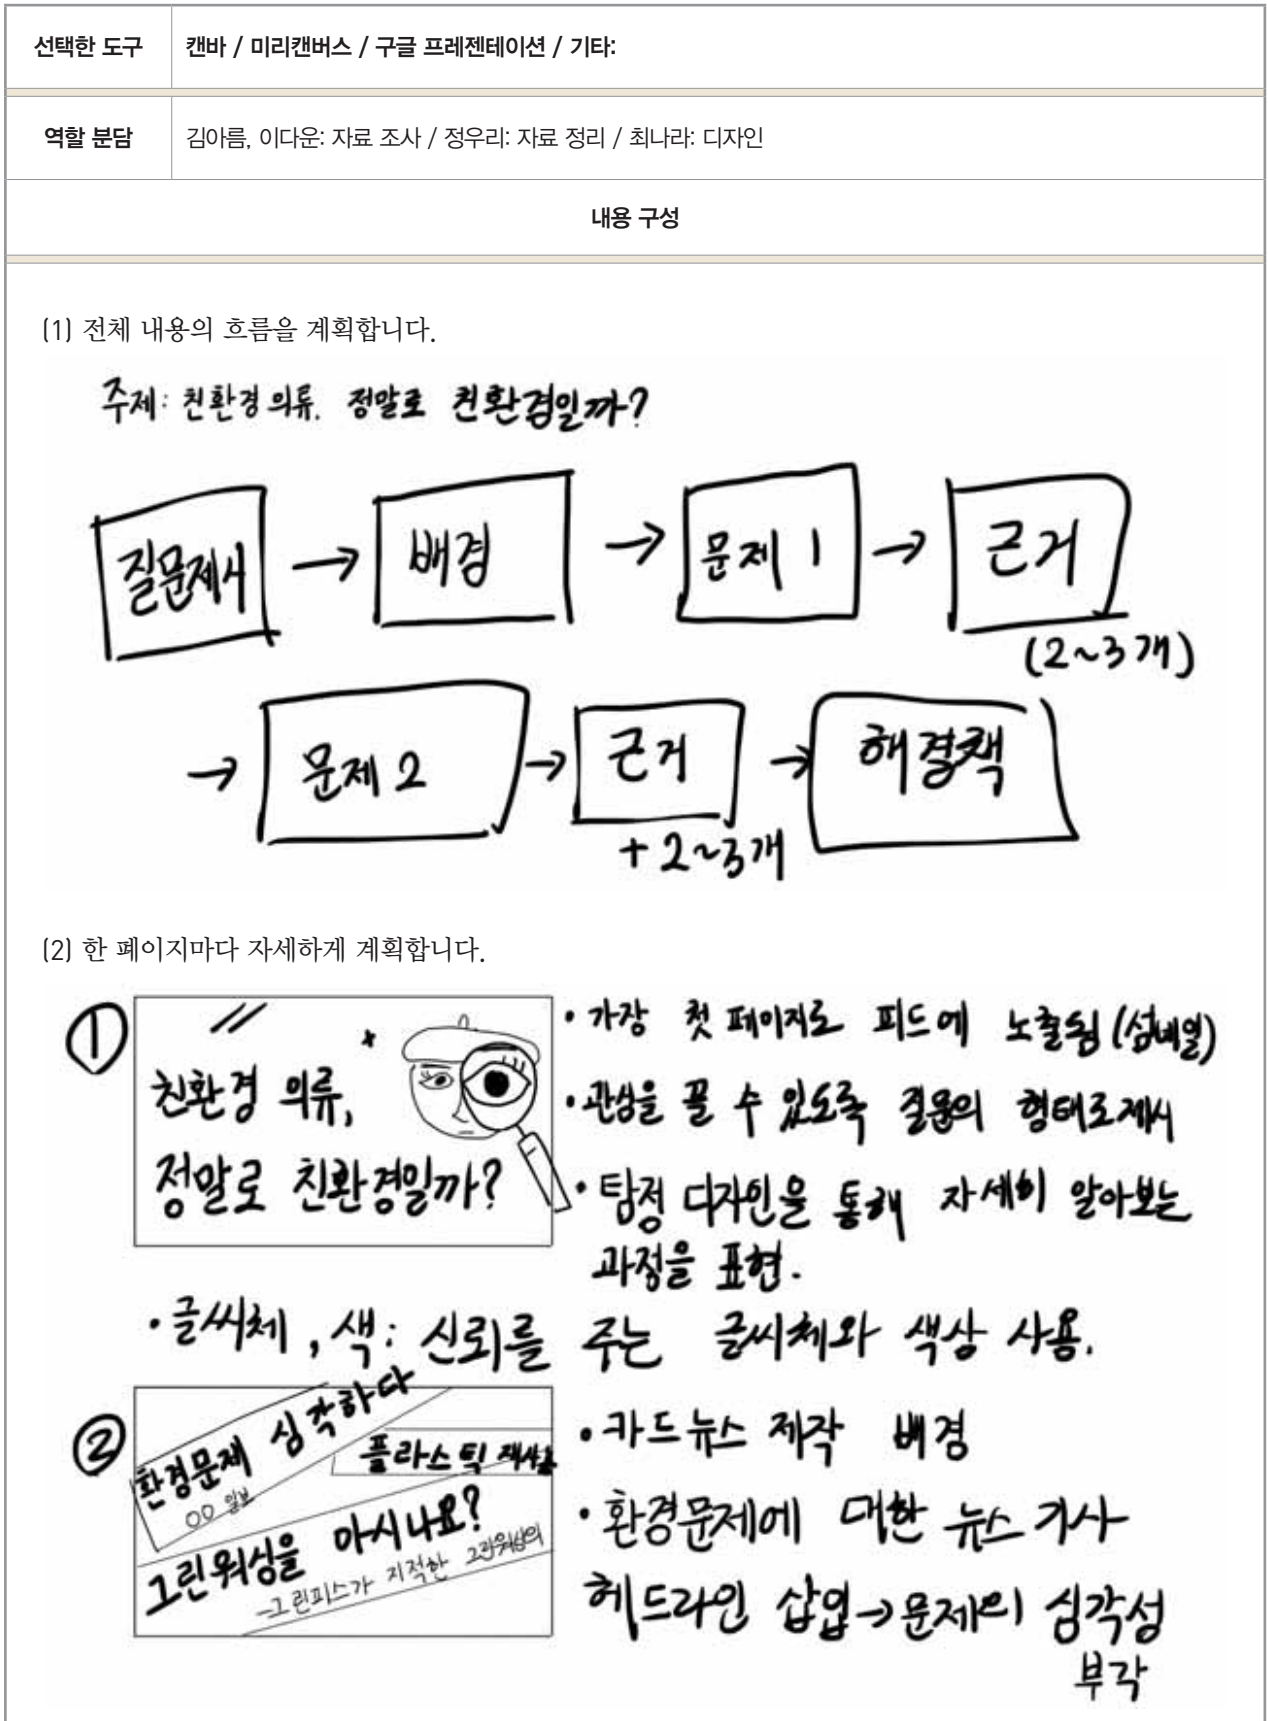 선택한 도구
캔바 / 미리캔버스 / 구글 프레젠테이션 / 기타:
역할 분담
김아름, 이다운: 자료 조사 / 정우리: 자료 정리 / 최나라: 디자인
내용 구성
(1) 전체 내용의 흐름을 계획합니다.
주제: 친환경 의류, 정말로 친환경일까?
질문제시 → 배경 → 문제 1 → 근거
(2~3개)
→ 문제 2 → 근거 → 해결책
+ 2~3개
(2) 한 페이지마다 자세하게 계획합니다.
①
친환경 의류,
정말로 친환경일까?
• 가장 첫 페이지로 피드에 노출됨 (섬네일)
• 관심을 끌 수 있도록 질문의 형태로 제시
• 탐정 디자인을 통해 자세히 알아보는
과정을 표현.
• 글씨체, 색: 신뢰를 주는 글씨체와 색상 사용.
②
환경문제 심각하다
○○ 일보
플라스틱 재사용
그린워싱을 아시나요?
-그린피스가 지적한 그린워싱의
• 카드뉴스 제작 배경
• 환경문제에 대한 뉴스 기사
헤드라인 삽입→문제의 심각성
부각